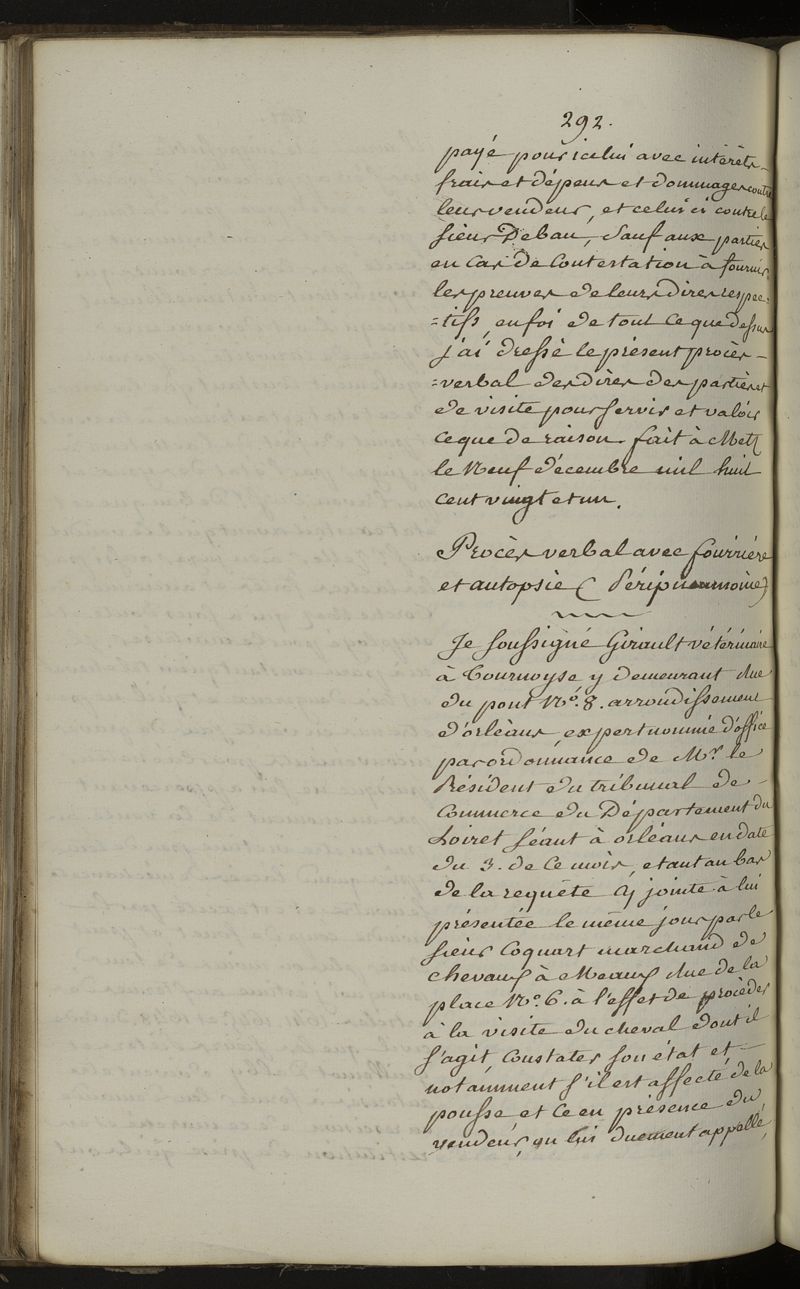 292.
payé pour icelui avec intérêts -
frais et dépens et dommages contre
leur vendeur, et celui ci contre le
sieur Debau, sauf aux parties
en cas de contestation à fournir
les preuves de leurs dires respec-
=tifs, en foi de tout ce que dessus
j'ai dressé le présent procès -
=verbal des dires des parties et
de visite pour servir et valoir
ce que de raison. fait à Metz
le Neuf décembre mil huit
cent vingt et un.
Procès verbal avec fourrière
et autopsie (Péripneumoine)
Je soussigné Girault vétérinaire
à Tournoyse y demeurant Rue
du pont N.º 8. arrondissement
d'orléans, expert nommé d'office
par ordonnance de M.r le
Président du tribunal de -
Commerce du Département du
Loiret séant à orléans en date
du 3. de ce mois, etant au bas
de la requête cy jointe à lui
présentée le même jour par le
sieur Coquart marchand de
chevaux à Meaux Rue de la
place N.º 6. à l'effet de procéder
à la visite du cheval dont il
s'agit, constater son état et -
notamment s'il est affecté de la
pousse et ce en présence du
vendeur, ou lui duement appellé,